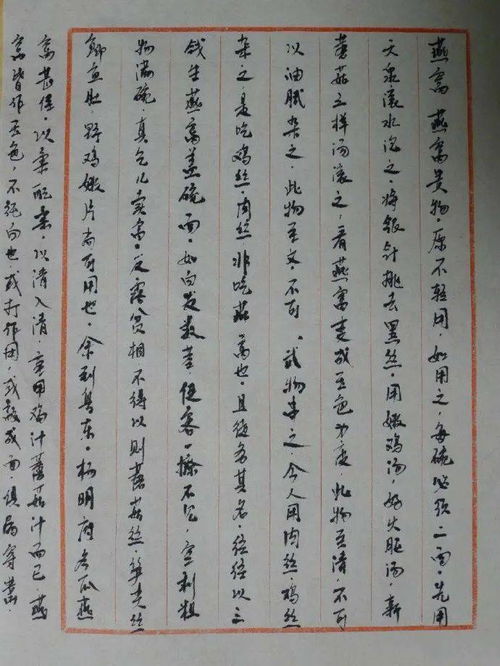 燕窩 燕窩贵物·原不轻用 如用之·每碗必须二両·先用
天泉滚水泡之 将银针挑去黑丝·用嫩鸡汤·好火腿汤·新
蘑菇三样汤滚之·看燕窩变成玉色为度 此物至清·不可
以油腻杂之·此物至文·不可、武物串之·今人用肉丝·鸡丝
杂之·是吃鸡丝·肉丝 非吃燕窩也·且徒务其名·往往以三
钱生燕窩盖碗面·如白发数茎 使客一撩不见·空剩粗
物满碗·真乞儿卖富·反露贫相 不得以则蘑菇丝·笋尖丝
鲫鱼肚·野鸡嫩片尚可用也·余到粤东·杨明府冬瓜燕
窩甚佳·以柔配柔·以清入清·重用鸡汁蘑菇汁而已·燕
窩皆作玉色·不纯白也·或打作团·或敲成面·俱属穿凿·